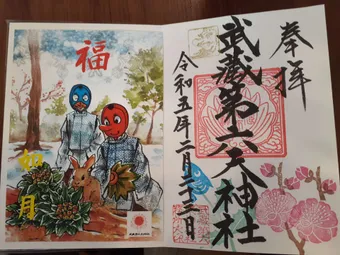 福
如月
奉拝
武蔵第六天神社
令和五年二月二十二日